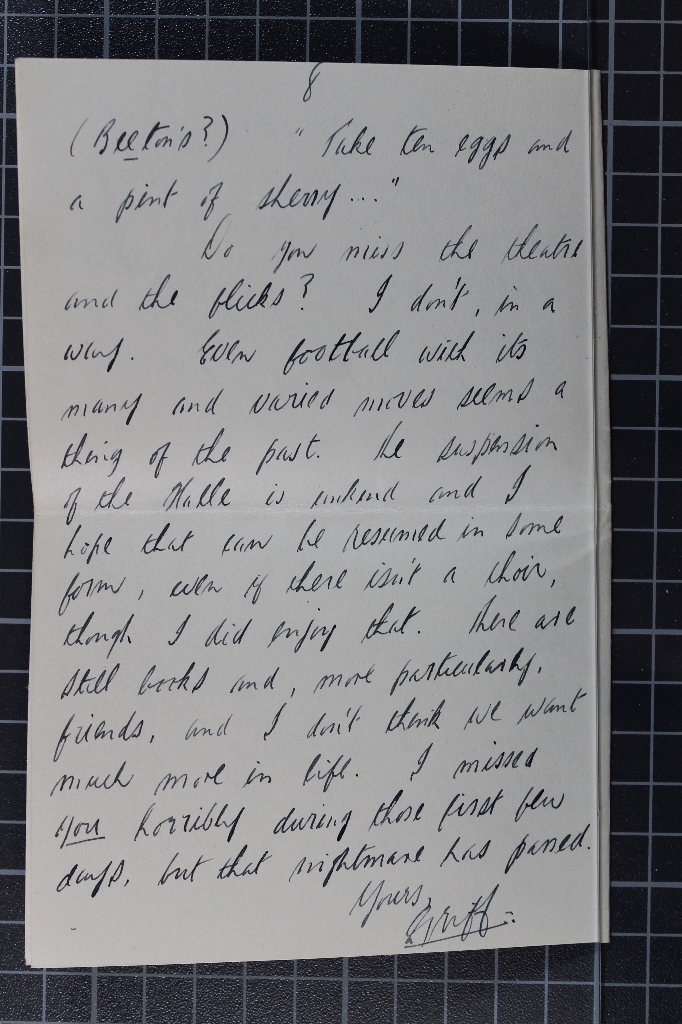 8
(Beeton's?) "Take ten eggs and
a pint of sherry..."
Do you miss the theatre
and the flicks? I don't, in a
way. Even football with its
many and varied moves seems a
thing of the past. The suspension
of the Halle is unkind and I
hope that can be resumed in some
form, even if there isn't a choir,
though I did enjoy that. There are
still books and, more particularly,
friends, and I don't think we want
much more in life. I missed
you horribly during those first few
days, but that nightmare has passed.
Yours,
Griff.